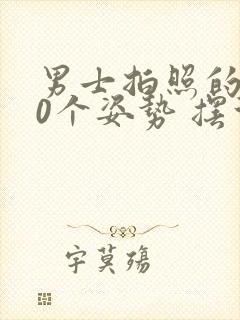 男士拍照的
0个姿势 摆
字莫殇